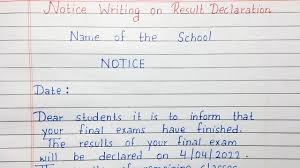 Notice Writing on Result Declaration
Name of the School
NOTICE
Date:
Dear students it is to inform that
your final exams have finished.
The results of your final exam
will be declared on 4/04/2022.
of remaining classes